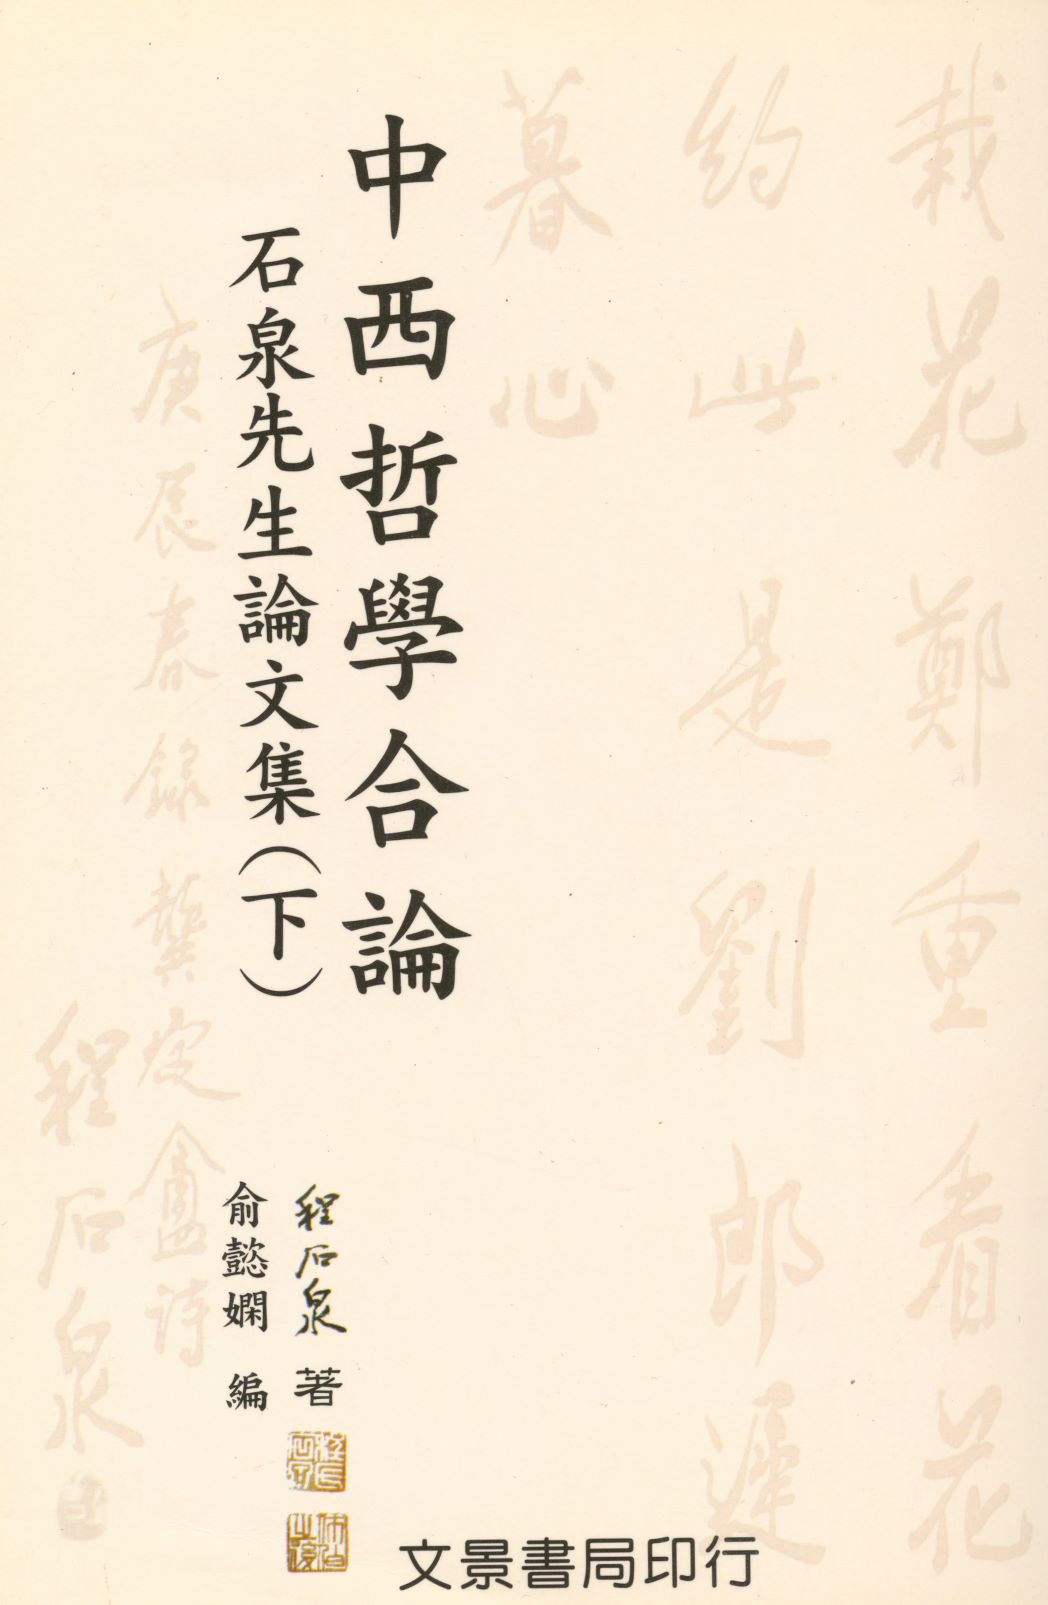 栽花鄭重看花
約此是劉郎遲
暮心
中西哲學合論
石泉先生論文集(下)
程石泉 著
俞懿嫻 編
庚辰春錄龔定盦詩
程石泉
文景書局印行